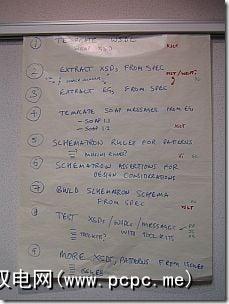 1 TEMPLATE WSDL
XSLT
2 EXTRACT XSDs FROM SPEC
3 EXTRACT EGs FROM SPEC
4 TEMPLATE SOAP MESSAGES FROM EGs
- SOAP 1.1
- SOAP 1.2
XSLT
5 SCHEMATRON RULES FOR PATTERNS
6 SCHEMATRON ASSERTIONS FOR
DESIGN CONSIDERATIONS
7 BUILD SCHEMATRON SCHEMA
FROM SPEC
XSLT
8 TEST XSDs/WSDLs/MESSAGES
WITH TOOLKITS
TOOLKITS?
9 MORE XSDs/PATTERNS FROM ISSUES
ISSUES
双电网(www.pcpc.me)